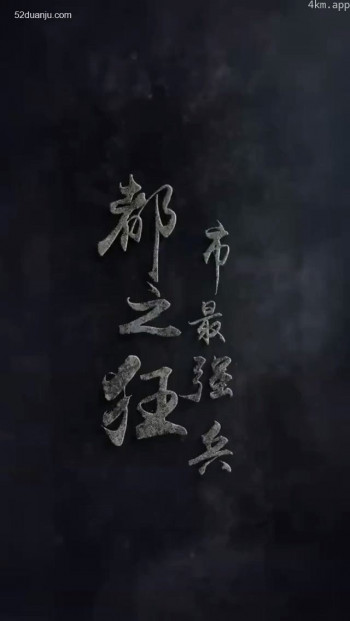 52duanju.com
4km.app
都之狂
市最强兵